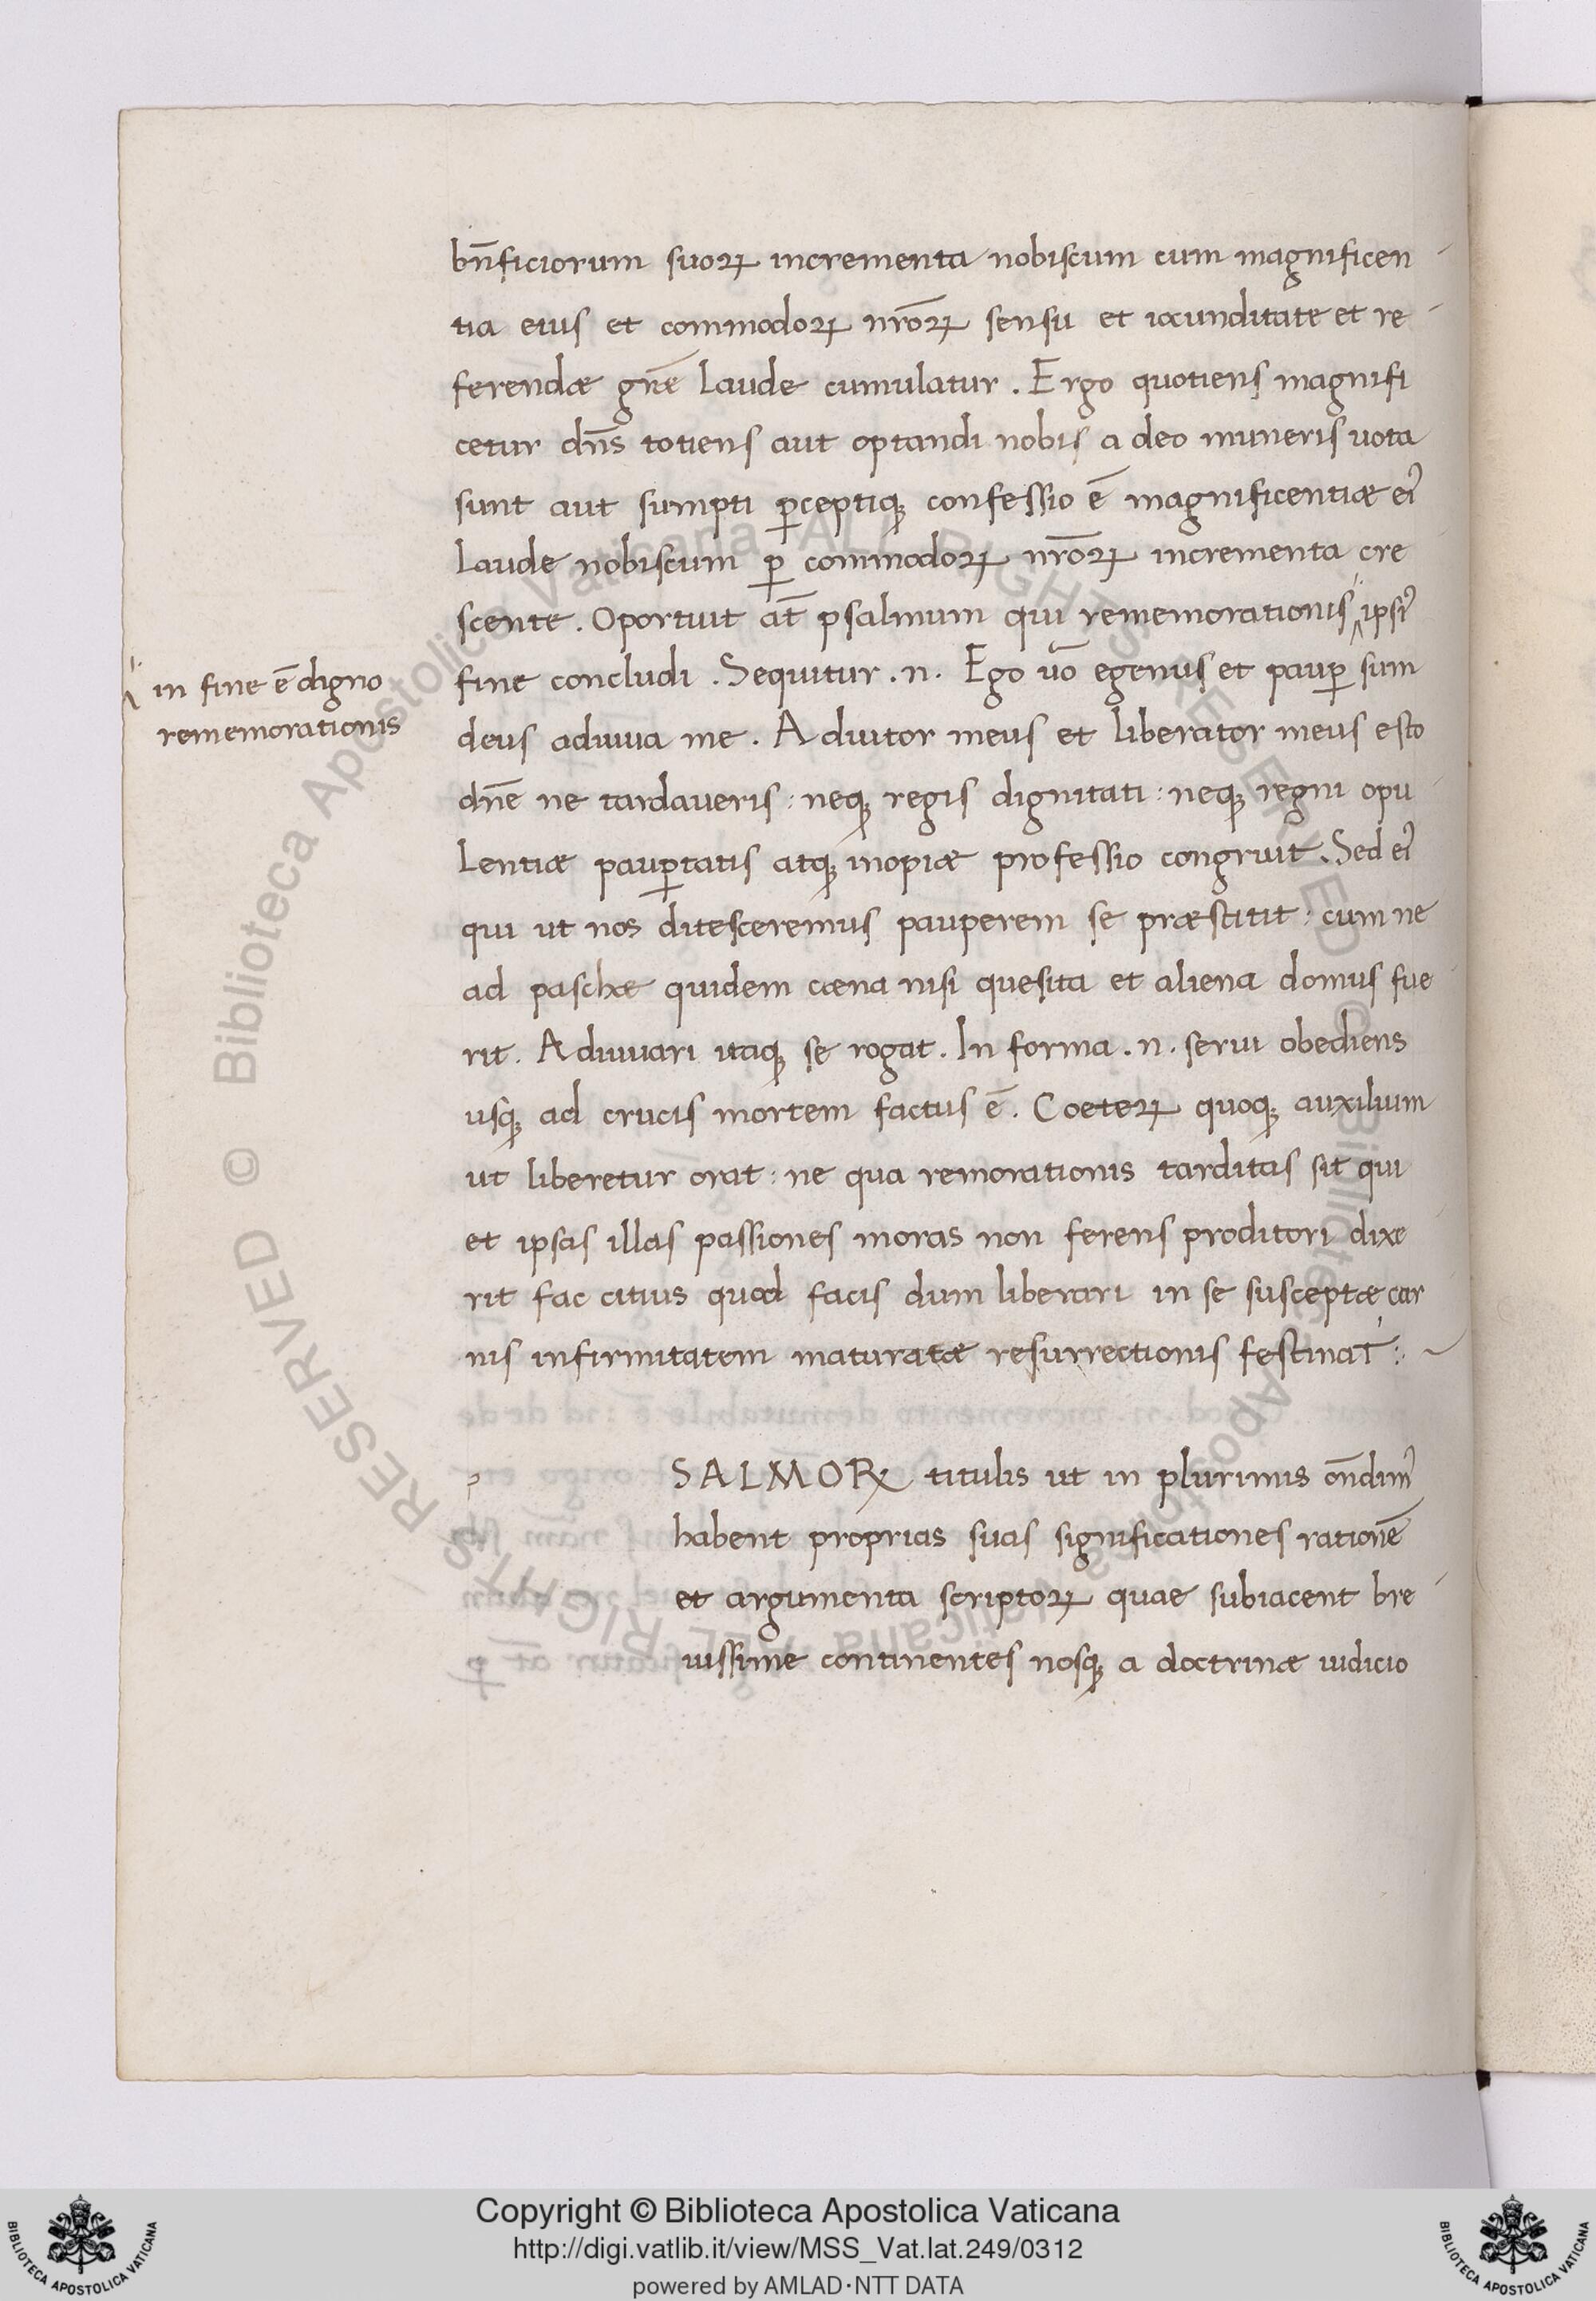 bn̄ficiorum suoꝝ incrementa nobiscum cum magnificen
tia eius et commodoꝝ nr̄oꝝ sensu et iocunditate et re
ferendæ gr̄ē laude cumulatur. Ergo quotiens magnifi
cetur dn̄s totiens aut optandi nobis a deo muneris uota
sunt aut sumpti ꝑceptiqꝫ confessio ē magnificentiæ eiꝰ
laude nobiscum ꝑ commodoꝝ nr̄oꝝ incrementa cre
scente. Oportuit at̄ psalmum qui rememorationis ipsiꝰ
in fine ē digno
rememorationis
fine concludi. Sequitur .n. Ego uō egenus et pauꝑ sum
deus adiuua me. Adiutor meus et liberator meus esto
dn̄e ne tardaueris: neqꝫ regis dignitati: neqꝫ regni opu
lentiæ pauꝑtatis atqꝫ inopiæ professio congruit. Sed eiꝰ
qui ut nos ditesceremus pauperem se præstitit: cum ne
ad paschæ quidem cæna nisi quesita et aliena domus fue
rit. Adiuuari itaqꝫ se rogat. In forma .n. serui obediens
usqꝫ ad crucis mortem factus ē. Coeteꝝ quoqꝫ auxilium
ut liberetur orat: ne qua remorationis tarditas sit qui
et ipsas illas passiones moras non ferens proditori dixe
rit fac citius quod facis dum liberari in se susceptæ car
nis infirmitatem maturatæ resurrectionis festinat:~
p
SALMOꝝ titulis ut in plurimis on̄dimꝰ
habent proprias suas significationes rationē
et argumenta scriptoꝝ quae subiacent bre
uissime continentes nosqꝫ a doctrinæ iudicio
© Biblioteca Apostolica Vaticana ALL RIGHTS RESERVED © Biblioteca Apostolica Vaticana ALL RIGHTS RESERVED
Copyright © Biblioteca Apostolica Vaticana
http://digi.vatlib.it/view/MSS_Vat.lat.249/0312
powered by AMLAD·NTT DATA
BIBLIOTECA APOSTOLICA VATICANA
BIBLIOTECA APOSTOLICA VATICANA